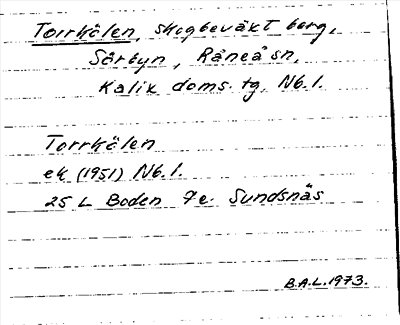 Torrkölen, skogbeväxt berg,
Sörbyn, Råneå sn,
Kalix doms. tg, Nb. l.
Torrkölen
ek (1951) Nb. l.
25 L Boden 7e. Sundsnäs
B.A.L. 1973.